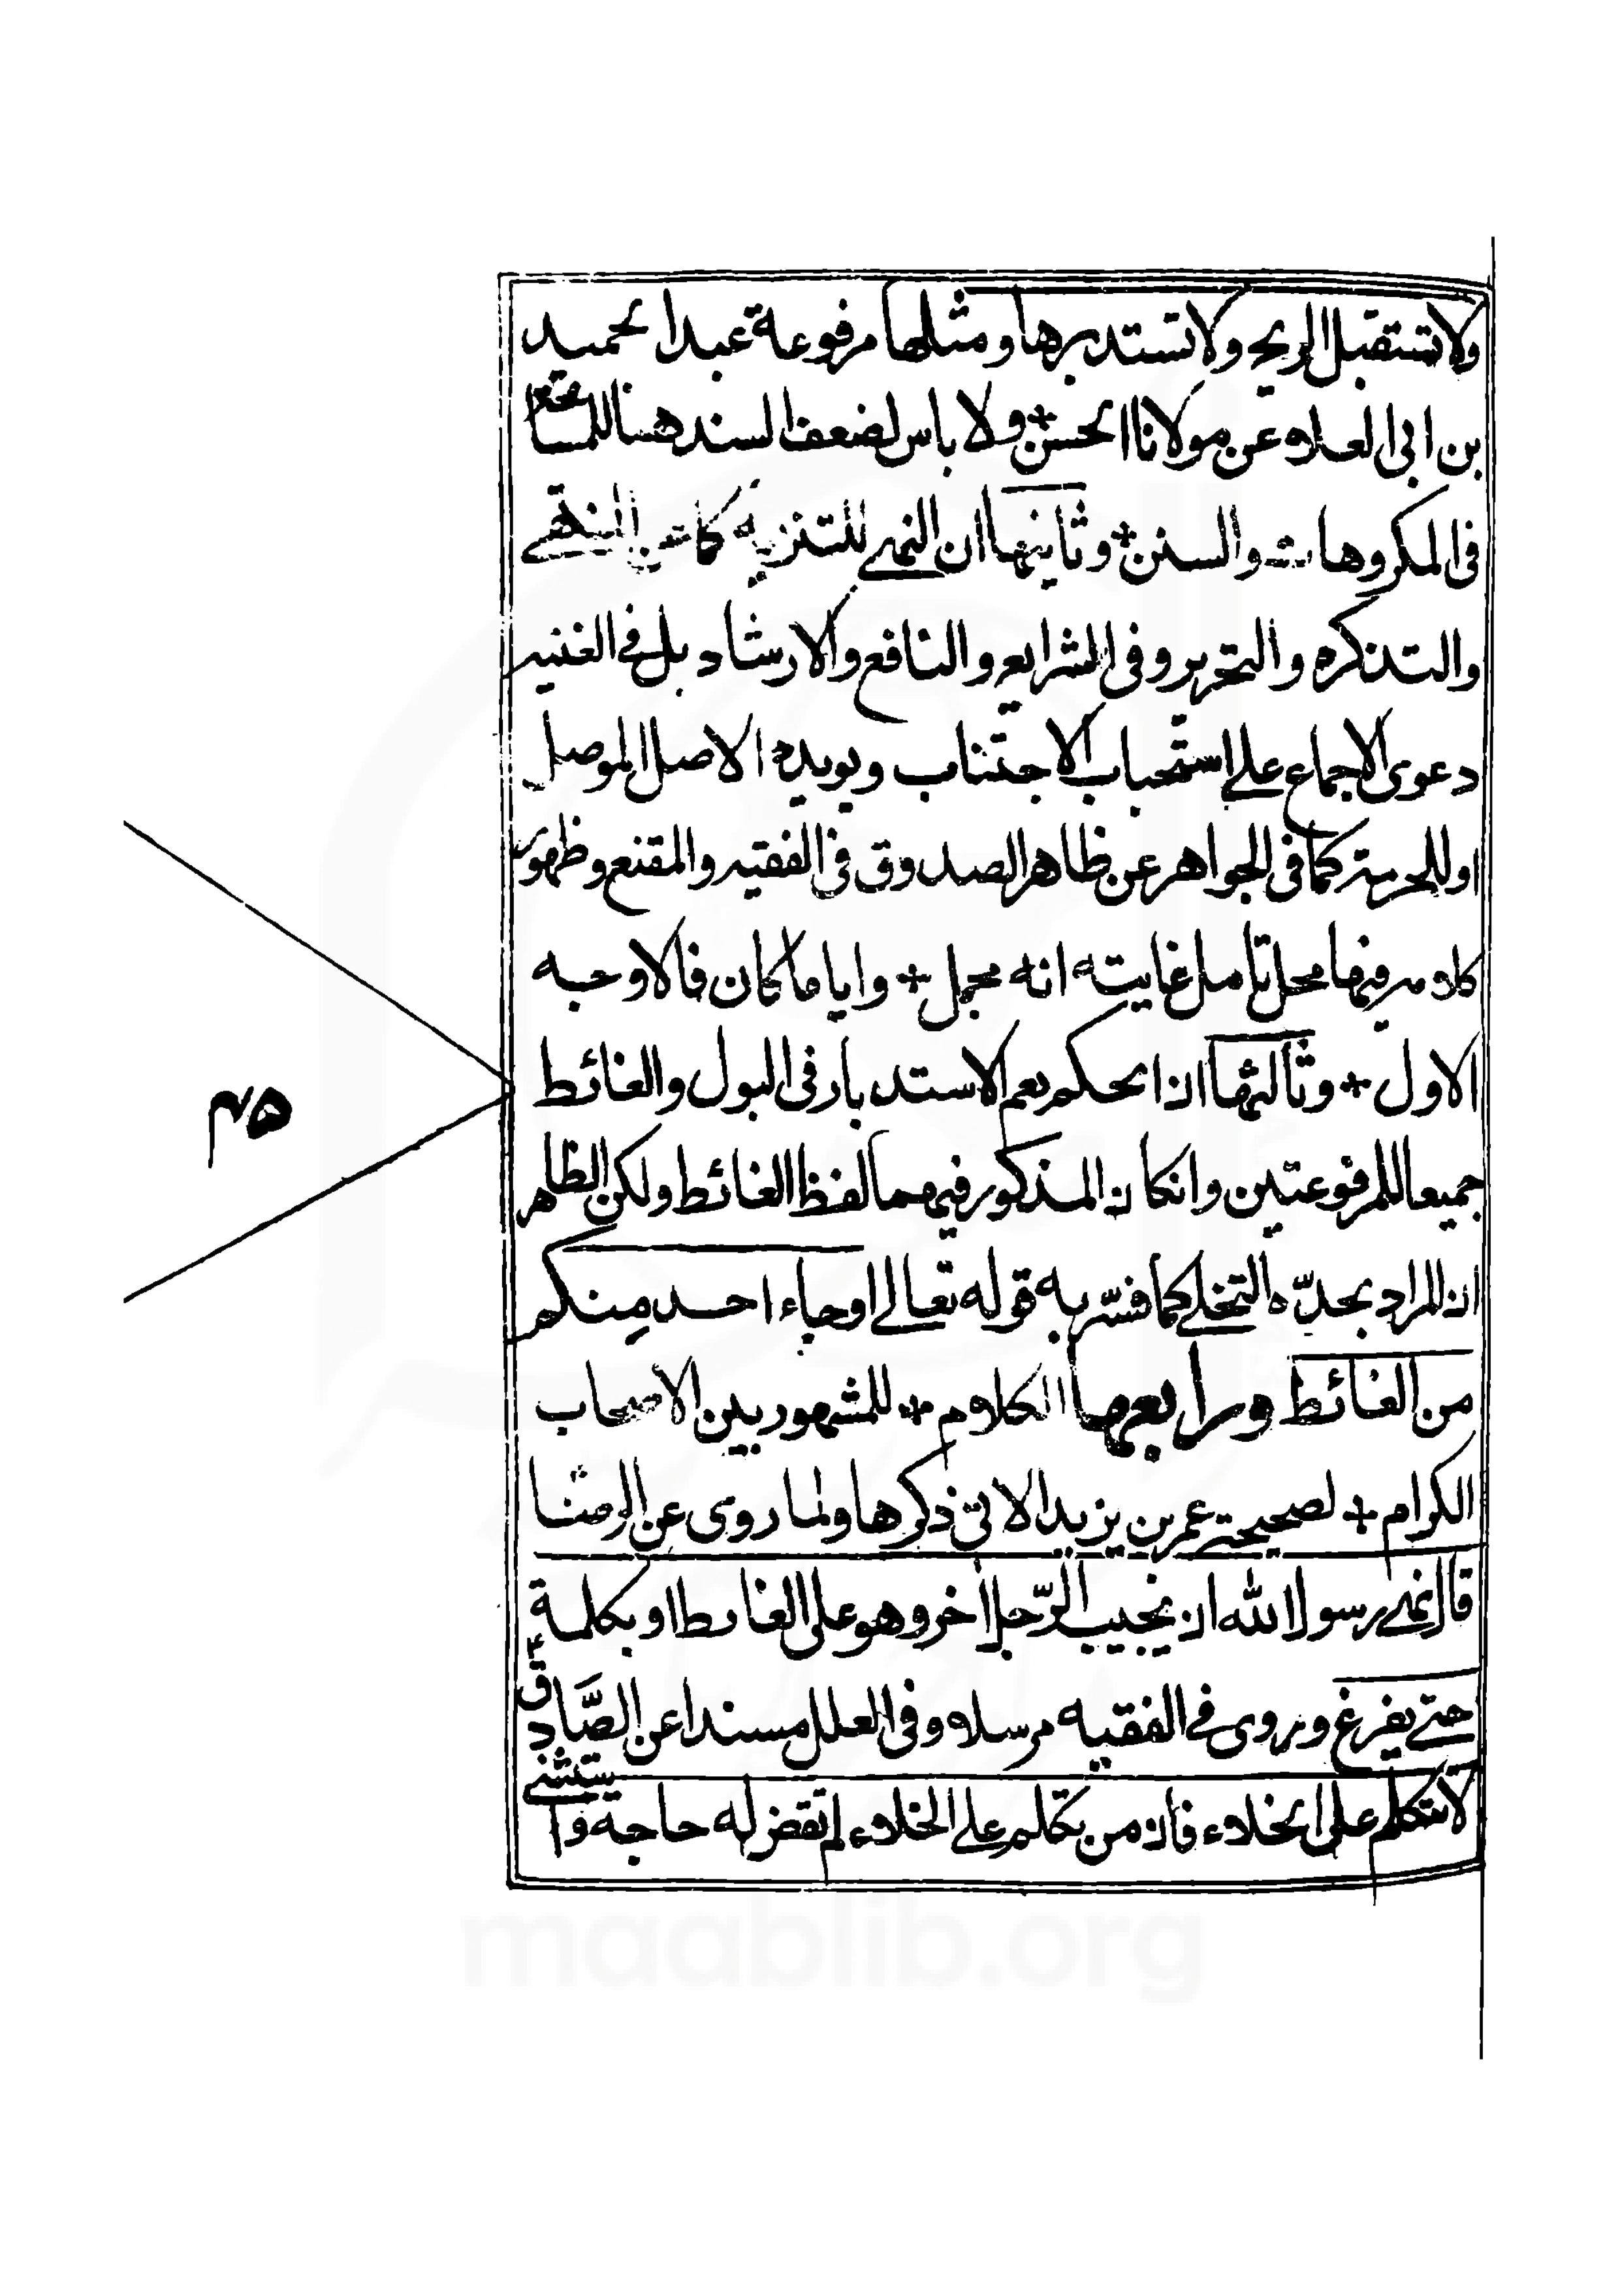 ولا تستقبل الريح ولا تستدبرها ومثلها مرفوعة عبد الحميد
بن ابى العلاء عن مولانا الحسن + ولا باس لضعف السند هنا للمسامحة
فى المكروهات والسنن + وثانيها ان النهى للتنزيه كما عن المنتهى
والتذكره والتحرير وفى الشرايع والنافع والارشاد بل فى الغنيه
دعوى الاجماع على استحباب الاجتناب ويويده الاصل الموصل
او للحرمة كما فى الجواهر عن ظاهر الصدوق فى الفقيه والمقنع وظهور
كلامه فيها محل تامل غايته انه مجمل + وايا ما كان فالاوجه
الاول + وثالثها ان الحكم يعم الاستدبار فى البول والغائط
جميعا للمرفوعتين وانكان المذكور فيهما لفظ الغائط ولكن الظاهر
ان المراد بحدّه التخلى كما فسّر به قوله تعالى اوجاء احد منكم
من الغائط ورابعها الكلام + للمشهور بين الاصحاب
الكرام + لصحيحة عمر بن يزيد الاتى ذكرها ولما روى عن الرضا
قال نهى رسول الله ان يجيب الرّجل اخر وهو على الغائط او بكلمة
حتى يفرغ وروى فى الفقيه مرسلا وفى العلل مسندا عن الصّادق
لا تتكلم على الخلاء فان من تكلم على الخلاء لم تقض له حاجة واستثنى
٤٥
maablib.org